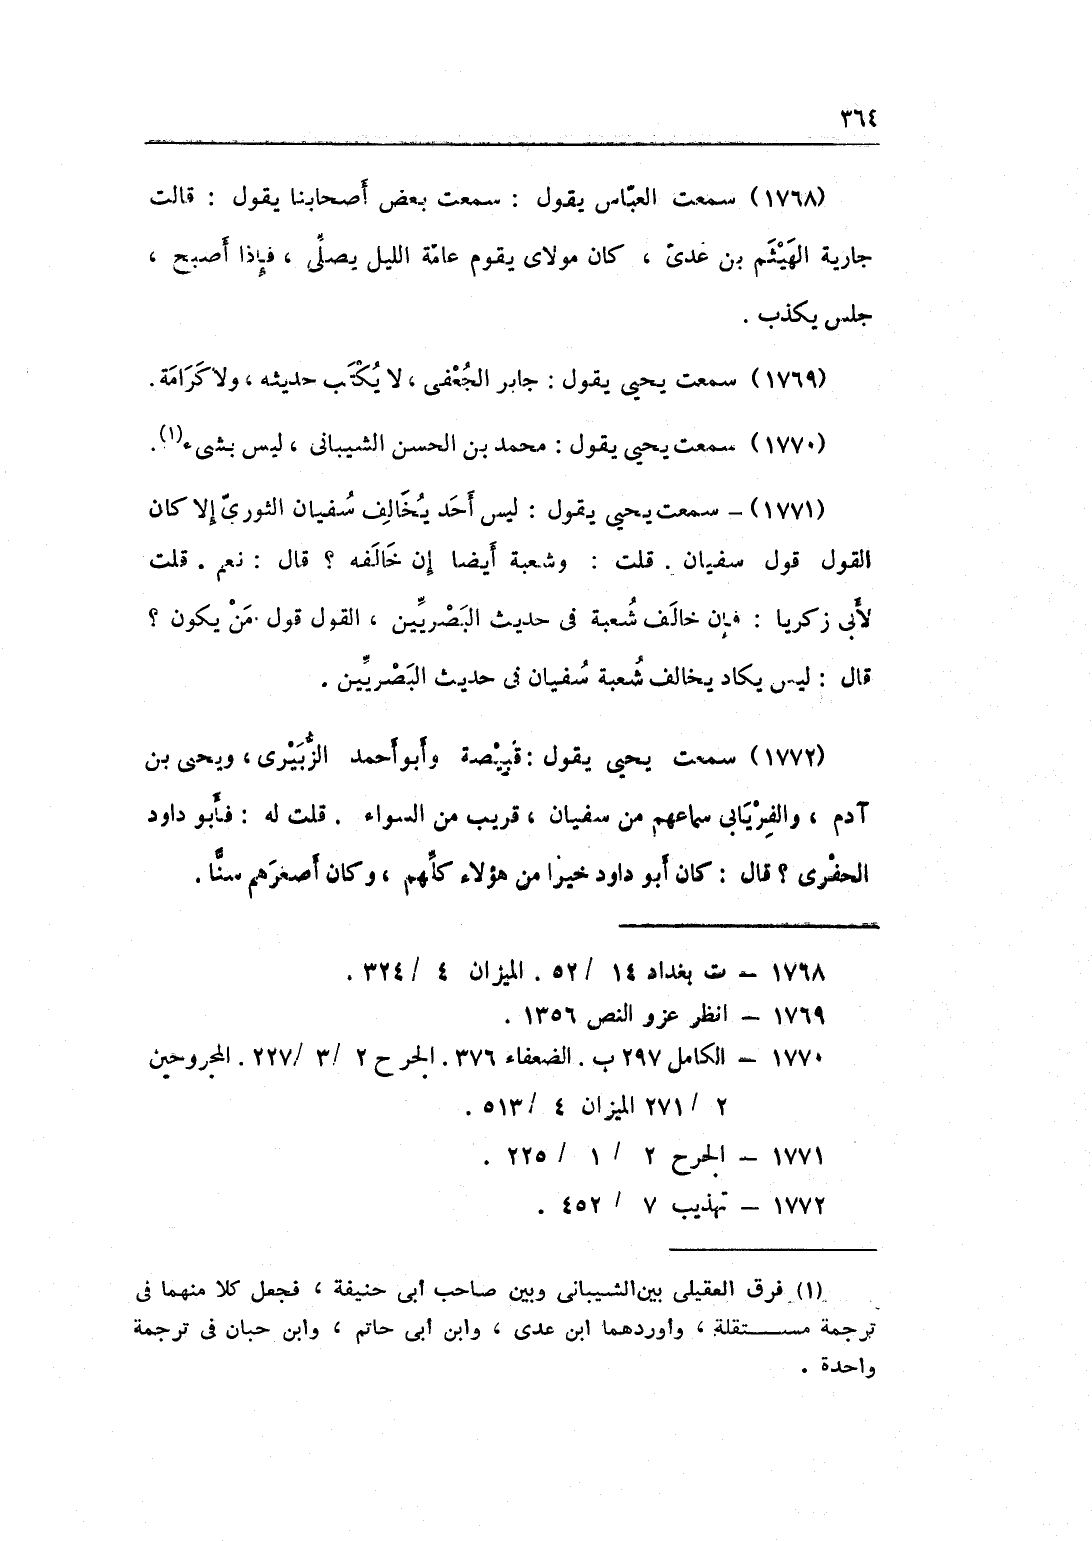 ٣٦٤
(١٧٦٨) سمعت العبّاس يقول : سمعت بعض أَصحابنا يقول : قالت
جارية الهَيْثَم بن عَدىّ ، كان مولاى يقوم عامّة الليل يصلِّى ، فإِذا أَصبح ،
جلس يكذب .
(١٧٦٩) سمعت يحيى يقول : جابر الجُعْفى ، لا يُكْتَب حديثه ، ولا كَرَامَة .
(١٧٧٠) سمعت يحيى يقول : محمد بن الحسن الشيبانى ، ليس بشىء(١).
(١٧٧١) – سمعت يحيى يقول : ليس أَحَد يُخَالِف سُفيان الثورىّ إلا كان
القول قول سفيان . قلت : وشعبة أَيضا إن خَالَفه ؟ قال : نعم . قلت
لأَبى زكريا : فإن خالَف شُعبة فى حديث البَصْريِّين ، القول قول مَنْ يكون ؟
قال : ليس يكاد يخالف شُعبة سُفيان فى حديث البَصْريِّين .
(١٧٧٢) سمعت يحيى يقول : قَبِيْصة وأَبو أَحمد الزُّبَيْرى ، ويحيى بن
آدم ، والفِرْيَابى سماعهم من سفيان ، قريب من السواء . قلت له : فأَبو داود
الحفْرى ؟ قال : كان أَبو داود خيرًا من هؤلاء كلِّهم ، وكان أَصغرَهم سنًّا .
١٧٦٨ – ت بغداد ١٤ / ٥٢ . الميزان ٤ / ٣٢٤ .
١٧٦٩ – انظر عزو النص ١٣٥٦ .
١٧٧٠ – الكامل ٢٩٧ ب . الضعفاء ٣٧٦ . الجرح ٢ / ٣ / ٢٢٧ . المجروحين
٢ / ٢٧١ الميزان ٤ / ٥١٣ .
١٧٧١ – الجرح ٢ / ١ / ٢٢٥ .
١٧٧٢ – تهذيب ٧ / ٤٥٢ .
(١) فرق العقيلى بين الشيبانى وبين صاحب أبى حنيفة ، فجعل كلا منهما فى
ترجمة مستقلة ، وأوردهما ابن عدى ، وابن أبى حاتم ، وابن حبان فى ترجمة
واحدة .